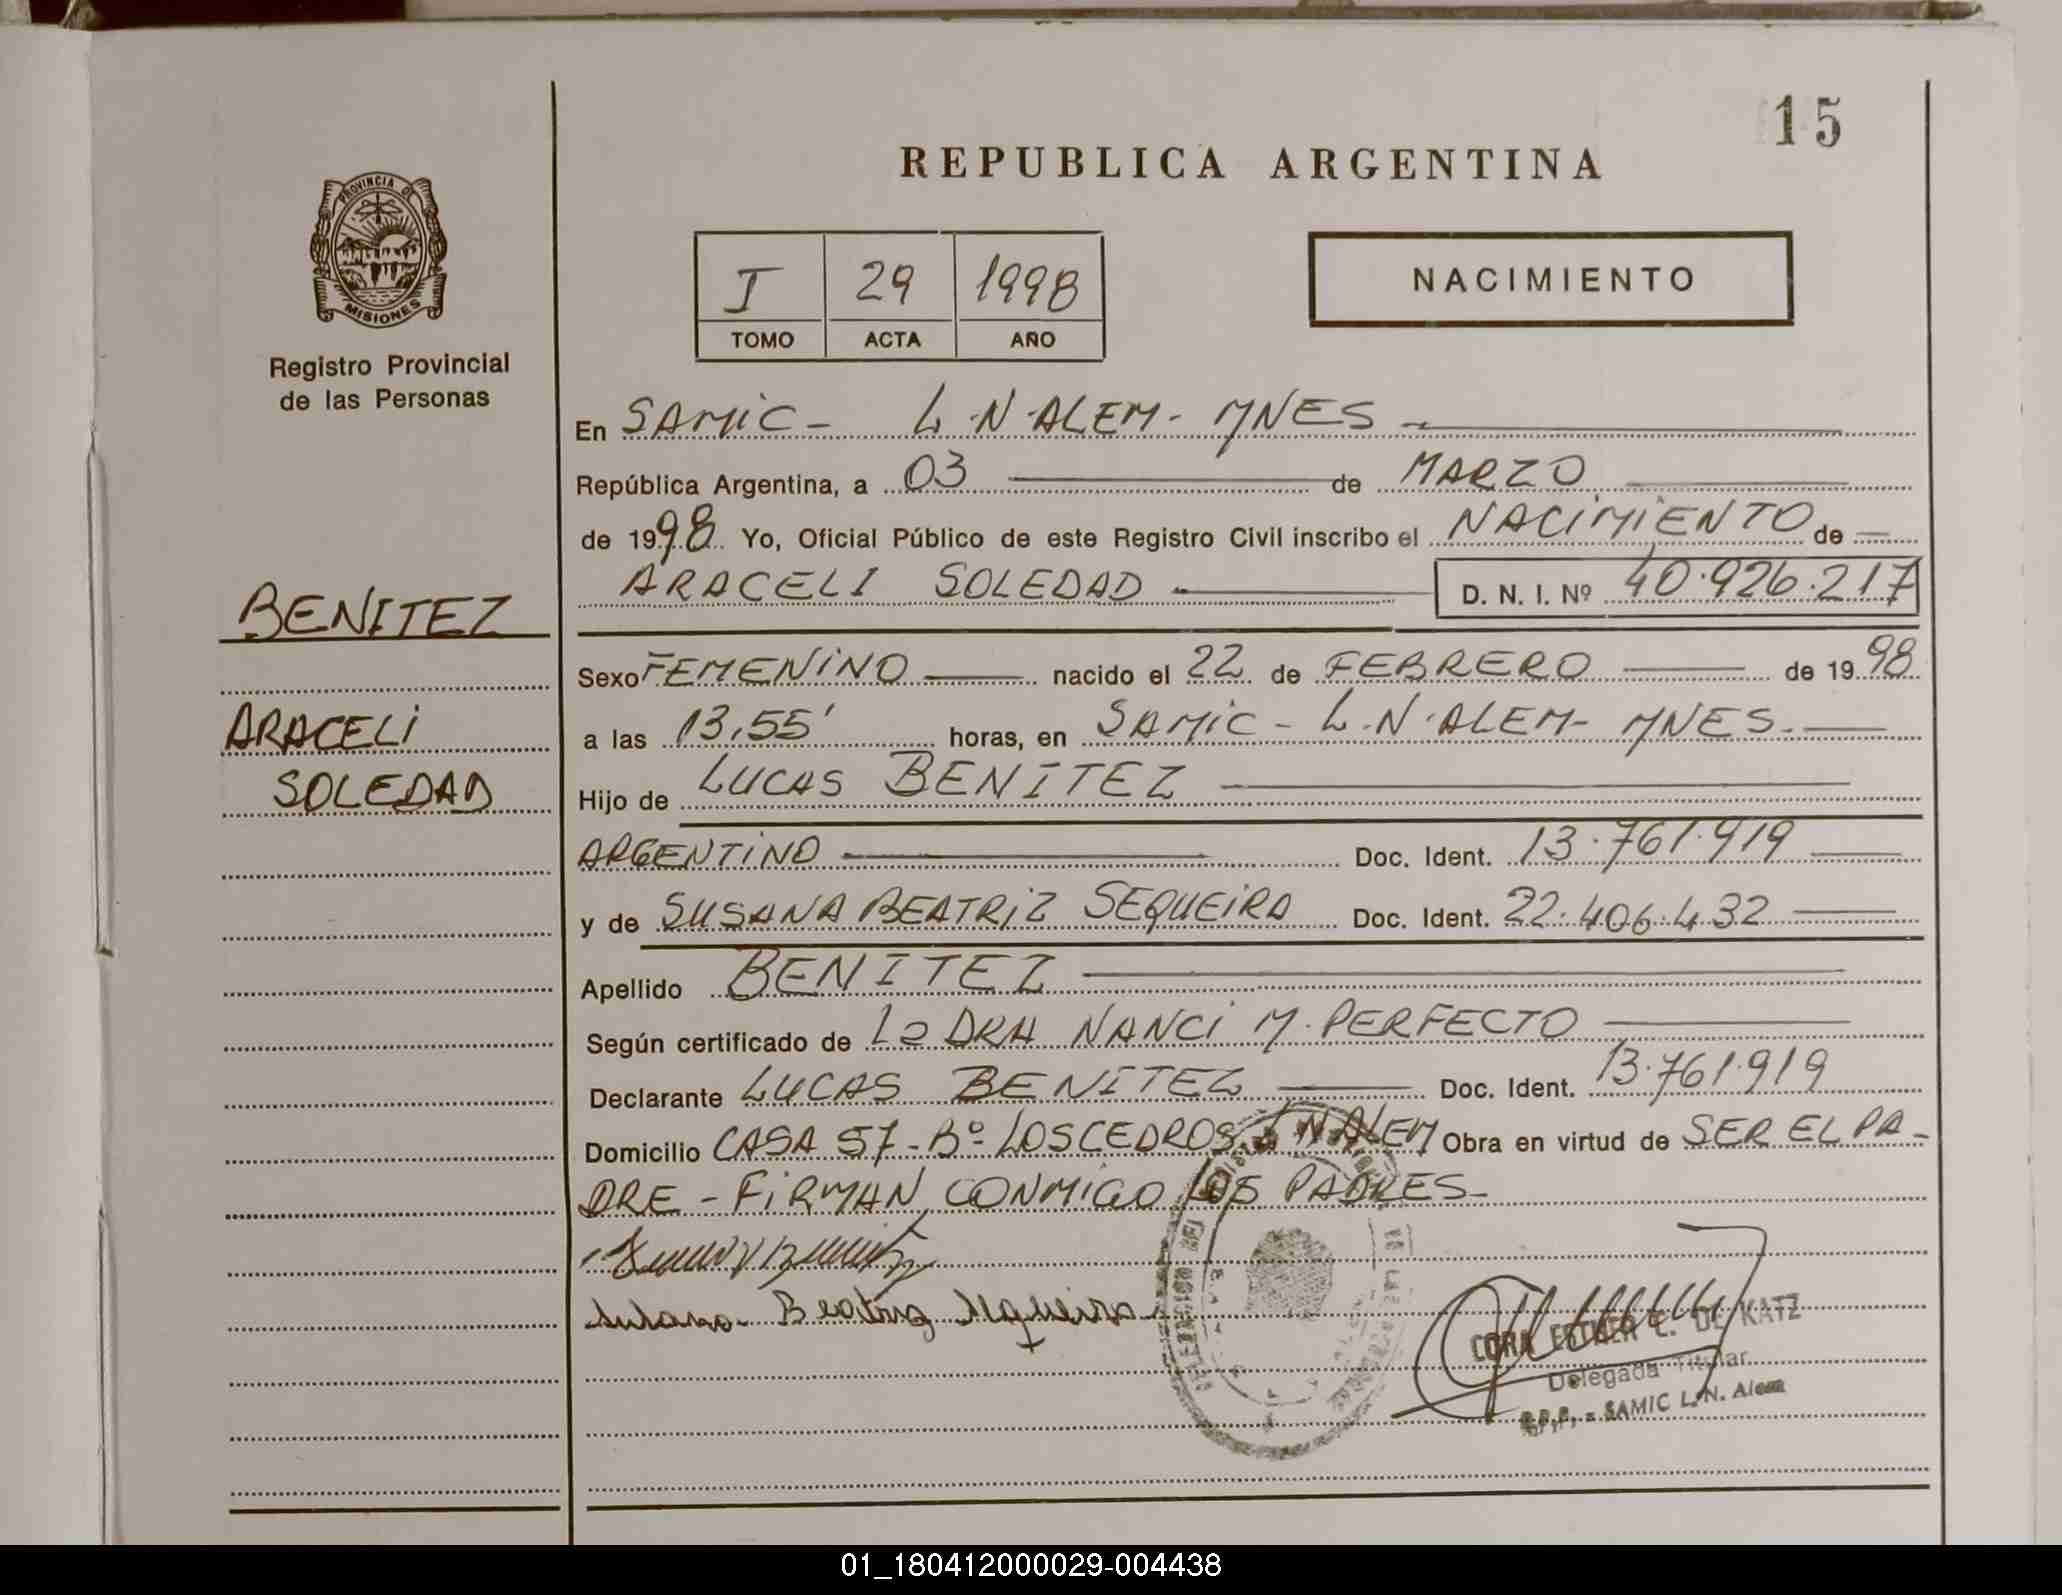 15
REPUBLICA ARGENTINA
PROVINCIA DE
MISIONES
Registro Provincial
de las Personas
I 29 1998
TOMO ACTA AÑO
NACIMIENTO
En SAMIC - L.N.ALEM - MNES -
República Argentina, a 03 de MARZO
de 1998 Yo, Oficial Público de este Registro Civil inscribo el NACIMIENTO de
ARACELI SOLEDAD D. N. I. Nº 40.926.217
BENITEZ
ARACELI
SOLEDAD
Sexo FEMENINO nacido el 22 de FEBRERO de 1998
a las 13,55' horas, en SAMIC - L.N.ALEM - MNES.-
Hijo de LUCAS BENITEZ
ARGENTINO Doc. Ident. 13.761.919
y de SUSANA BEATRIZ SEQUEIRA Doc. Ident. 22.406.432
Apellido BENITEZ
Según certificado de La DRA NANCI M. PERFECTO
Declarante LUCAS BENITEZ Doc. Ident. 13.761.919
Domicilio CASA 57 - Bº LOS CEDROS L N ALEM Obra en virtud de SER EL PA-
DRE - FIRMAN CONMIGO LOS PADRES-
Susana Beatriz Sequeira
CORA ESTHER E. DE KATZ
Delegada Titular
R.P.P. - SAMIC L.N. Alem
01_180412000029-004438